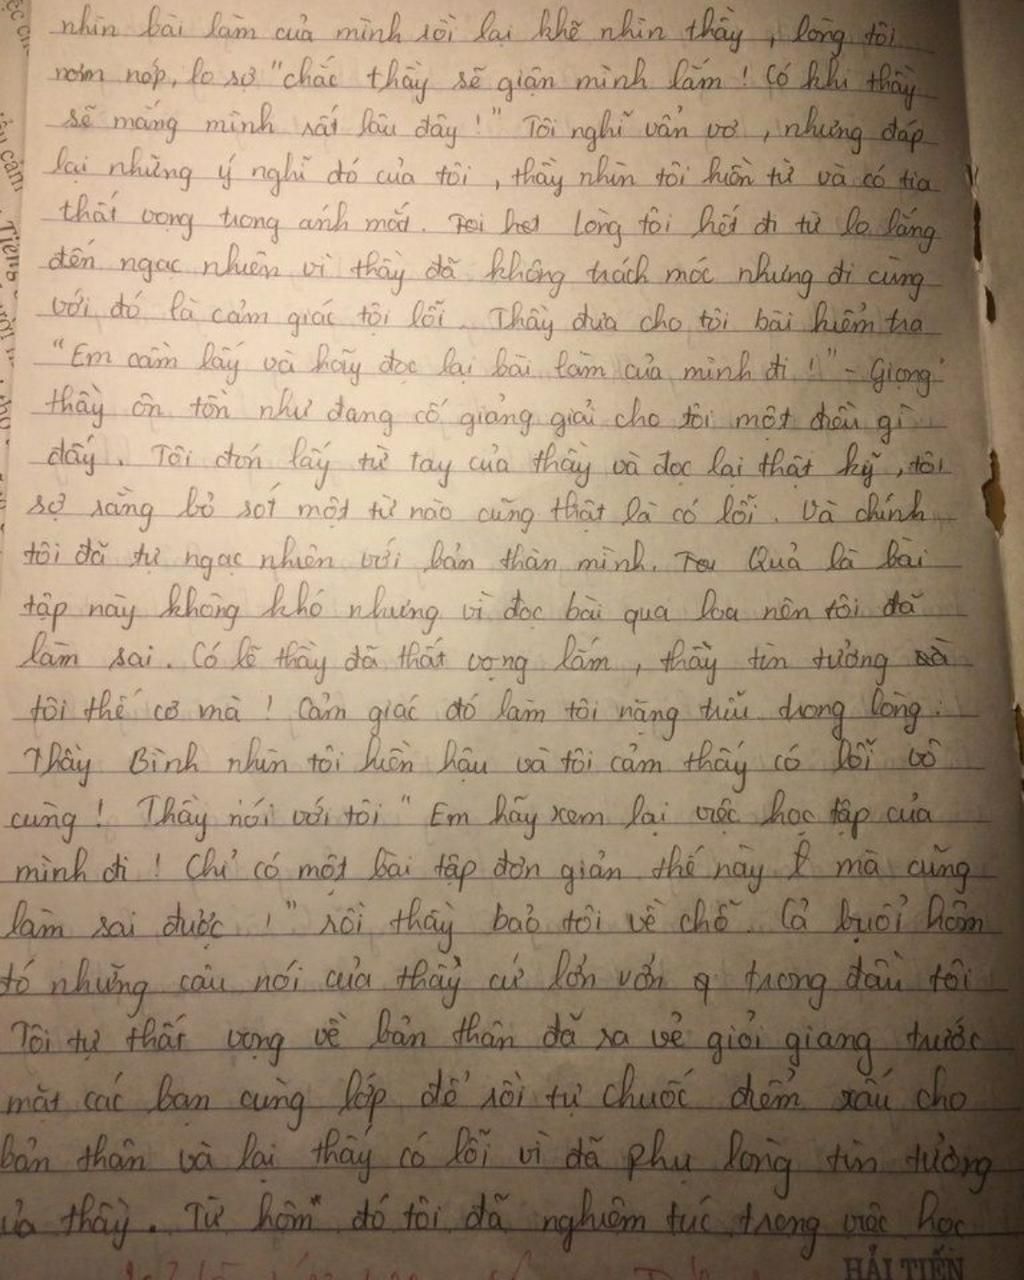 nhìn bài làm của mình rồi lại khẽ nhìn thầy, lòng tôi
nơm nớp, lo sợ "chắc thầy sẽ giận mình lắm! Có khi thầy
sẽ mắng mình rất lâu đấy!" Tôi nghĩ vẩn vơ, nhưng đáp
lại những ý nghĩ đó của tôi, thầy nhìn tôi hiền từ và có tia
thất vọng trong ánh mắt. Lòng tôi hết đi từ lo lắng
đến ngạc nhiên vì thầy đã không trách móc nhưng đi cùng
với đó là cảm giác tội lỗi. Thầy đưa cho tôi bài kiểm tra
"Em cầm lấy và hãy đọc lại bài làm của mình đi!" - Giọng
thầy ôn tồn như đang cố giảng giải cho tôi một điều gì
đấy. Tôi đón lấy từ tay của thầy và đọc lại thật kỹ, tôi
sợ rằng bỏ sót một từ nào cũng thật là có lỗi. Và chính
tôi đã tự ngạc nhiên với bản thân mình. Quả là bài
tập này không khó nhưng vì đọc bài qua loa nên tôi đã
làm sai. Có lẽ thầy đã thất vọng lắm, thầy tin tưởng
tôi thế cơ mà! Cảm giác đó làm tôi nặng trĩu trong lòng.
Thầy Bình nhìn tôi hiền hậu và tôi cảm thấy có lỗi vô
cùng! Thầy nói với tôi "Em hãy xem lại việc học tập của
mình đi! Chỉ có một bài tập đơn giản thế này mà cũng
làm sai được!" rồi thầy bảo tôi về chỗ. Cả buổi hôm
đó những câu nói của thầy cứ lởn vởn ở trong đầu tôi
Tôi tự thất vọng về bản thân đã ra vẻ giỏi giang trước
mặt các bạn cùng lớp để rồi tự chuốc điểm xấu cho
bản thân và lại thấy có lỗi vì đã phụ lòng tin tưởng
của thầy. Từ hôm đó tôi đã nghiêm túc trong việc học
HẢI TIẾN